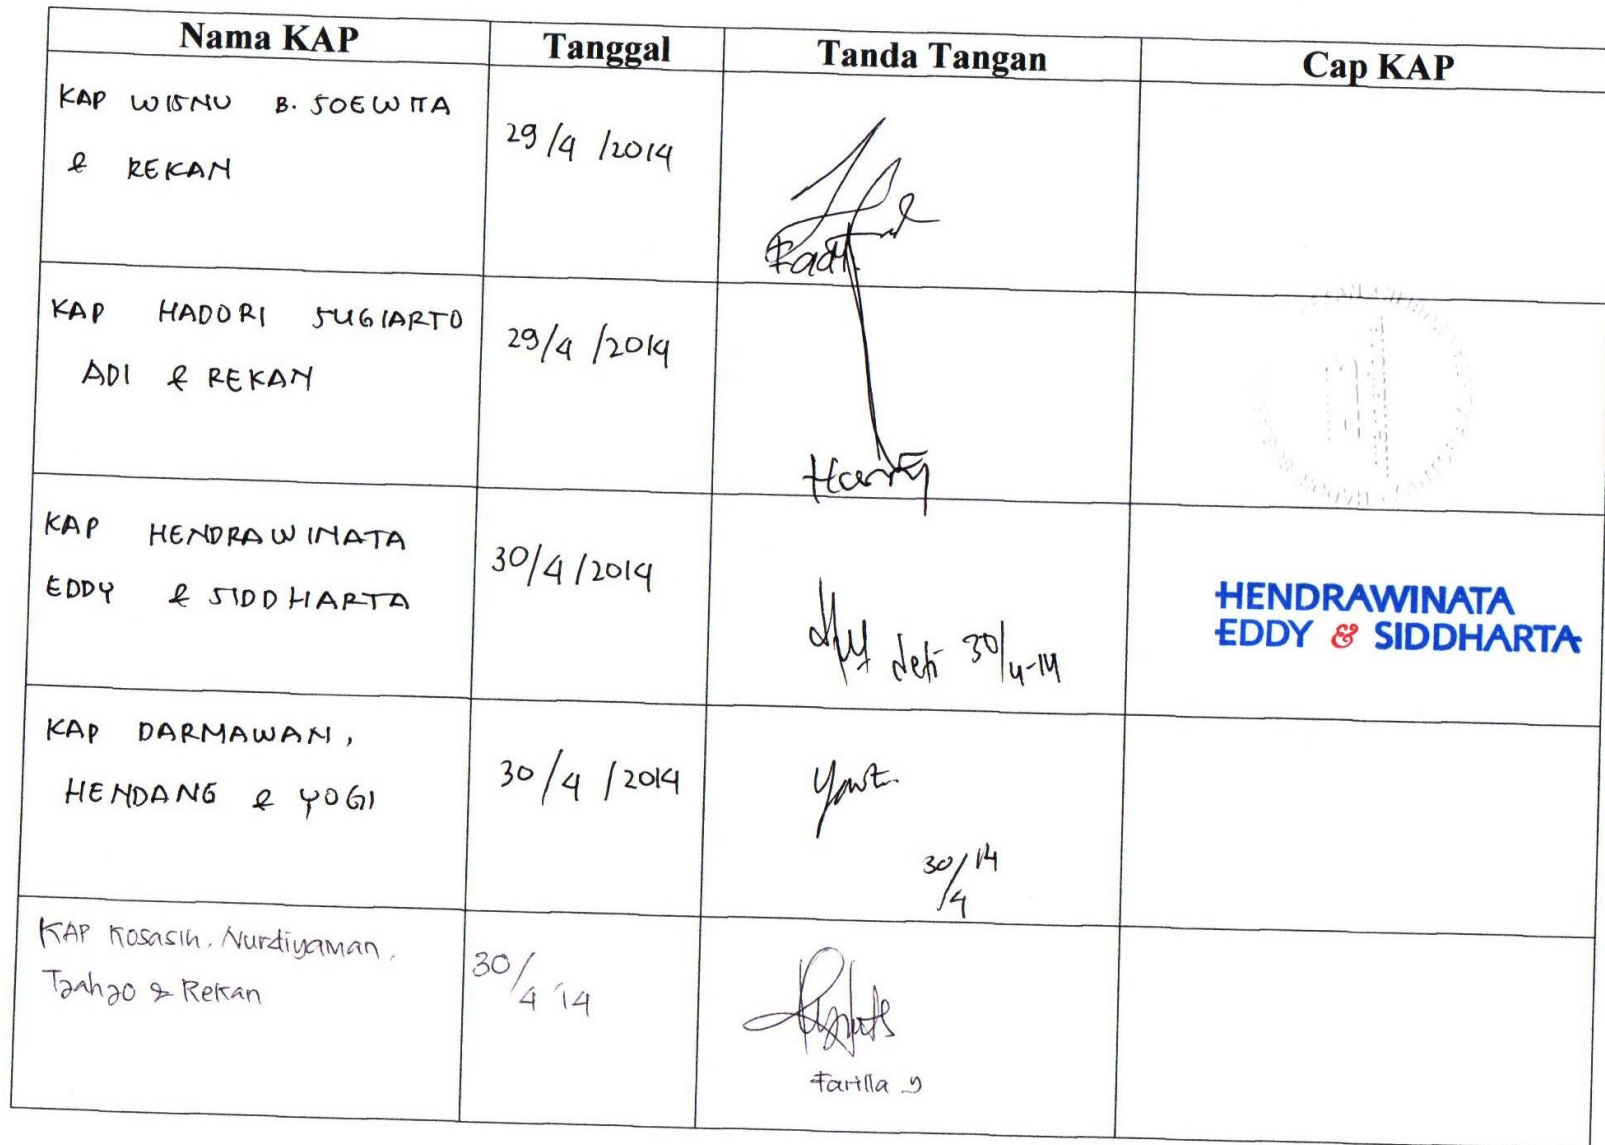 Nama KAP Tanggal Tanda Tangan Cap KAP
KAP WISNU B. SOEWITA
& REKAN
29/4/2014
KAP HADORI SUGIARTO
ADI & REKAN
29/4/2014
Harry
KAP HENDRAWINATA
EDDY & SIDDHARTA
30/4/2014
30/4-14
HENDRAWINATA
EDDY & SIDDHARTA
KAP DARMAWAN,
HENDANG & YOGI
30/4/2014
30/4 14
KAP Kosasih, Nurdiyaman,
Tjahjo & Rekan
30/4 '14
Farilla y